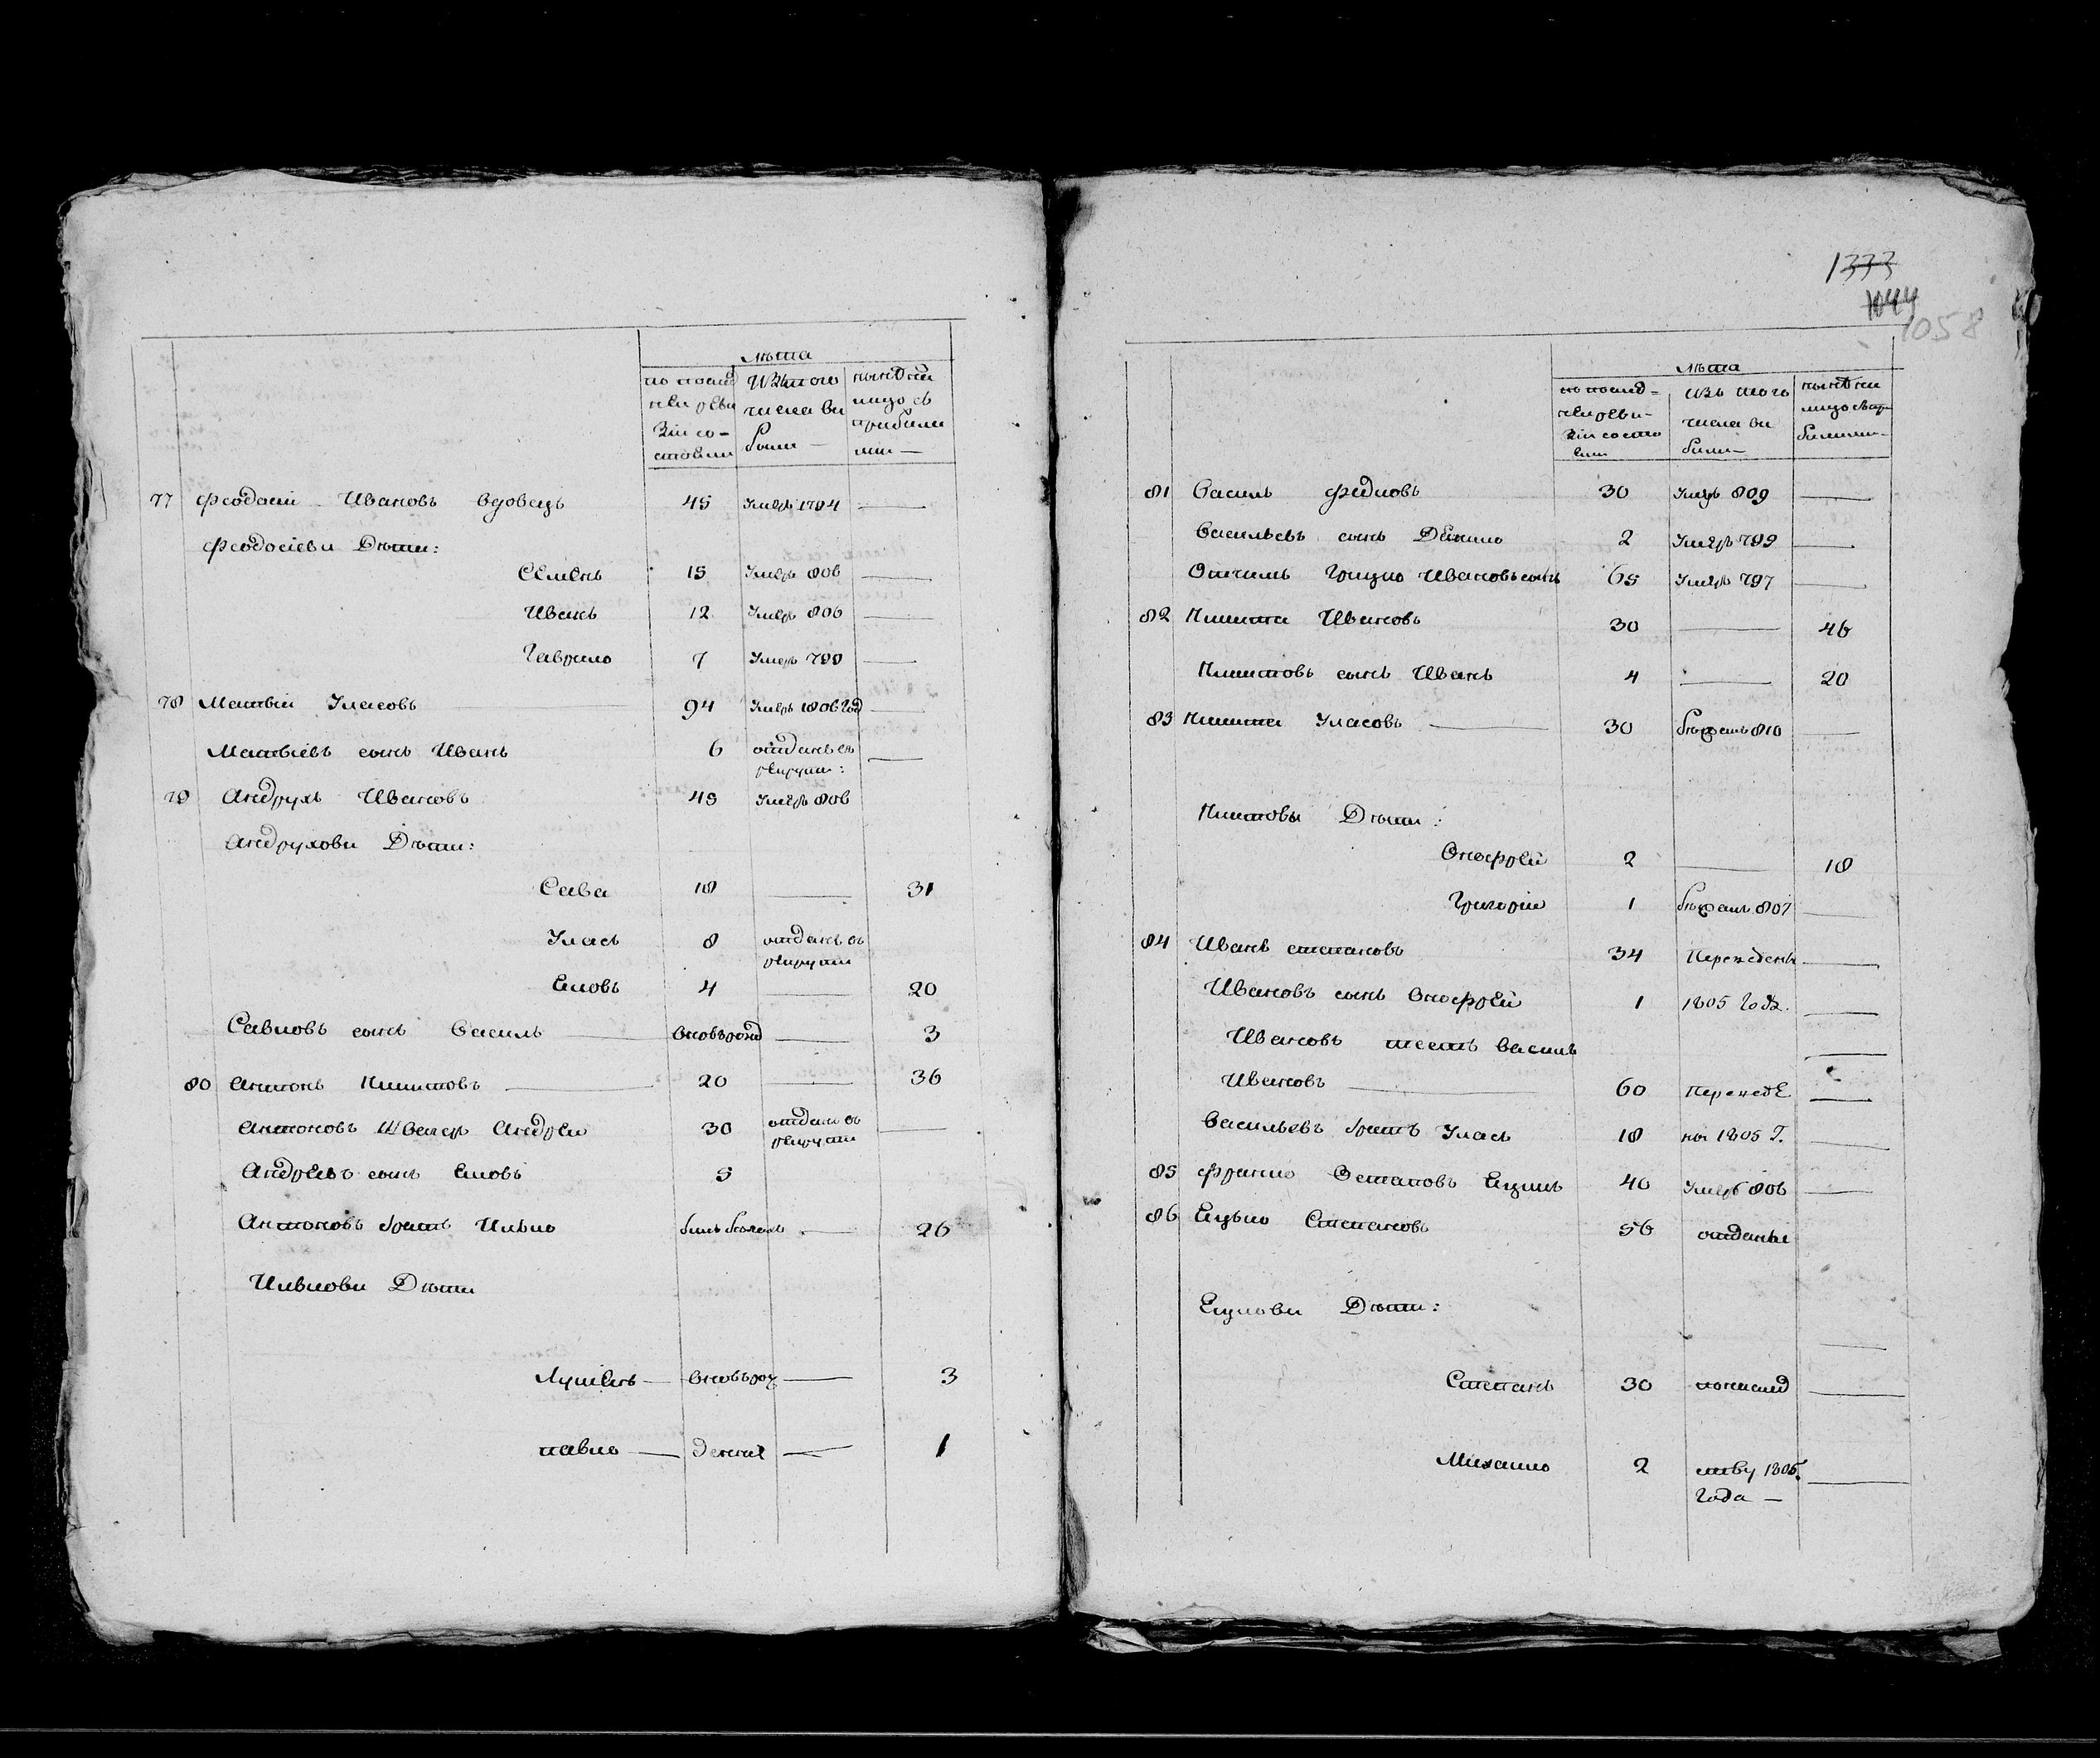 лѣта
по послед
ней реви
зіи со-
стояли
изъ того
числа вы
были —
нынѣ на
лицо съ
прибыли
ми —
77 Феодосій Ивановъ вдовецъ 45 умеръ 1794 —
Феодосіеви Дѣти:
Семенъ 15 умеръ 806 —
Иванъ 12 умеръ 806 —
Гаврило 7 умеръ 799 —
78 Матвій Уласовъ 94 умеръ 1806 год —
Матвіевъ сынъ Иванъ 6 отданъ въ —
рекруты:
79 Андрухъ Ивановъ 45 умеръ 806
Андрухови Дѣти:
Сава 18 — 31
Уласъ 8 отданъ въ
рекруты
Яковъ 4 — 20
Савковъ сынъ Василь — вновьрожд — 3
80 Антонъ Никитовъ — 20 — 36
Антоновъ Швагер Андрей 30 отданъ въ —
рекруты
Андреевъ сынъ Яковъ 5
Антоновъ братъ Илько — 26
Ильковы Дѣти
вновьрож — 3
павло — — 1
1333
1044
1058
лѣта
по послед=
ней реви-
зіи состо
яли
изъ того
числа вы
были —
нынѣ на
81 Василь Федковъ 30 умеръ 809 —
Васильевъ сынъ Демко 2 умеръ 799 —
Отчимъ Грицко Ивановъ сынъ 65 умеръ 797 —
82 Никита Ивановъ 30 — 46
Никитовъ сынъ Иванъ 4 — 20
83 Никита Уласовъ — 30 бѣжалъ 810 —
Никитовы Дѣти:
Онофрей 2 — 18
Григорій 1 бѣжалъ 807 —
84 Иванъ степановъ 34 Переведенъ —
Ивановъ сынъ Онофрей 1 1805 года. —
Ивановъ тесть Василь —
Ивановъ — 60 Переведе —
Васильевъ братъ Уласъ 18 ны 1805 г. —
85 Франко Остаповъ 40 умеръ 806 —
86 Яцько Степановъ 56 отданы
Яцкови Дѣти:
—
Степанъ 30 —
Михайло 2 ству 1805. —
года —